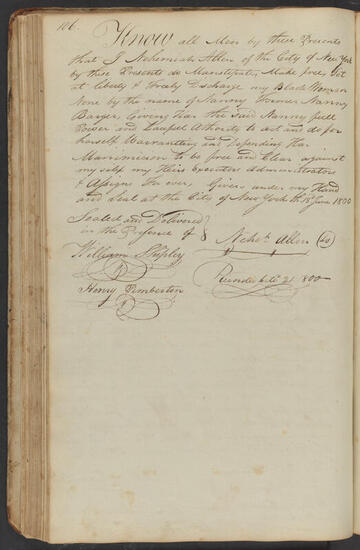 106.
Know all Men by these Presents
that I Nehemiah Allen of the City of New York
by these Presents do Manstipate, Make free, Set
at liberty & freely Discharge my Black Woman
None by the name of Nanny Former Nanny
Barger, Giveng Har the Said Nanny full
Power and Laufel Athority to act and do for
harself Warrantting and Defending Har
Manimicion to be free and Clear against
my self my Heirs Executors Administrators
& Assigns For ever, Given under my Hand
and Seal at the City of New York th 18th June 1800
Sealed and Delivered
in the Presence of
William Shipley
Nehe.h Allen (LS)
Henry Pemberton
21 1800